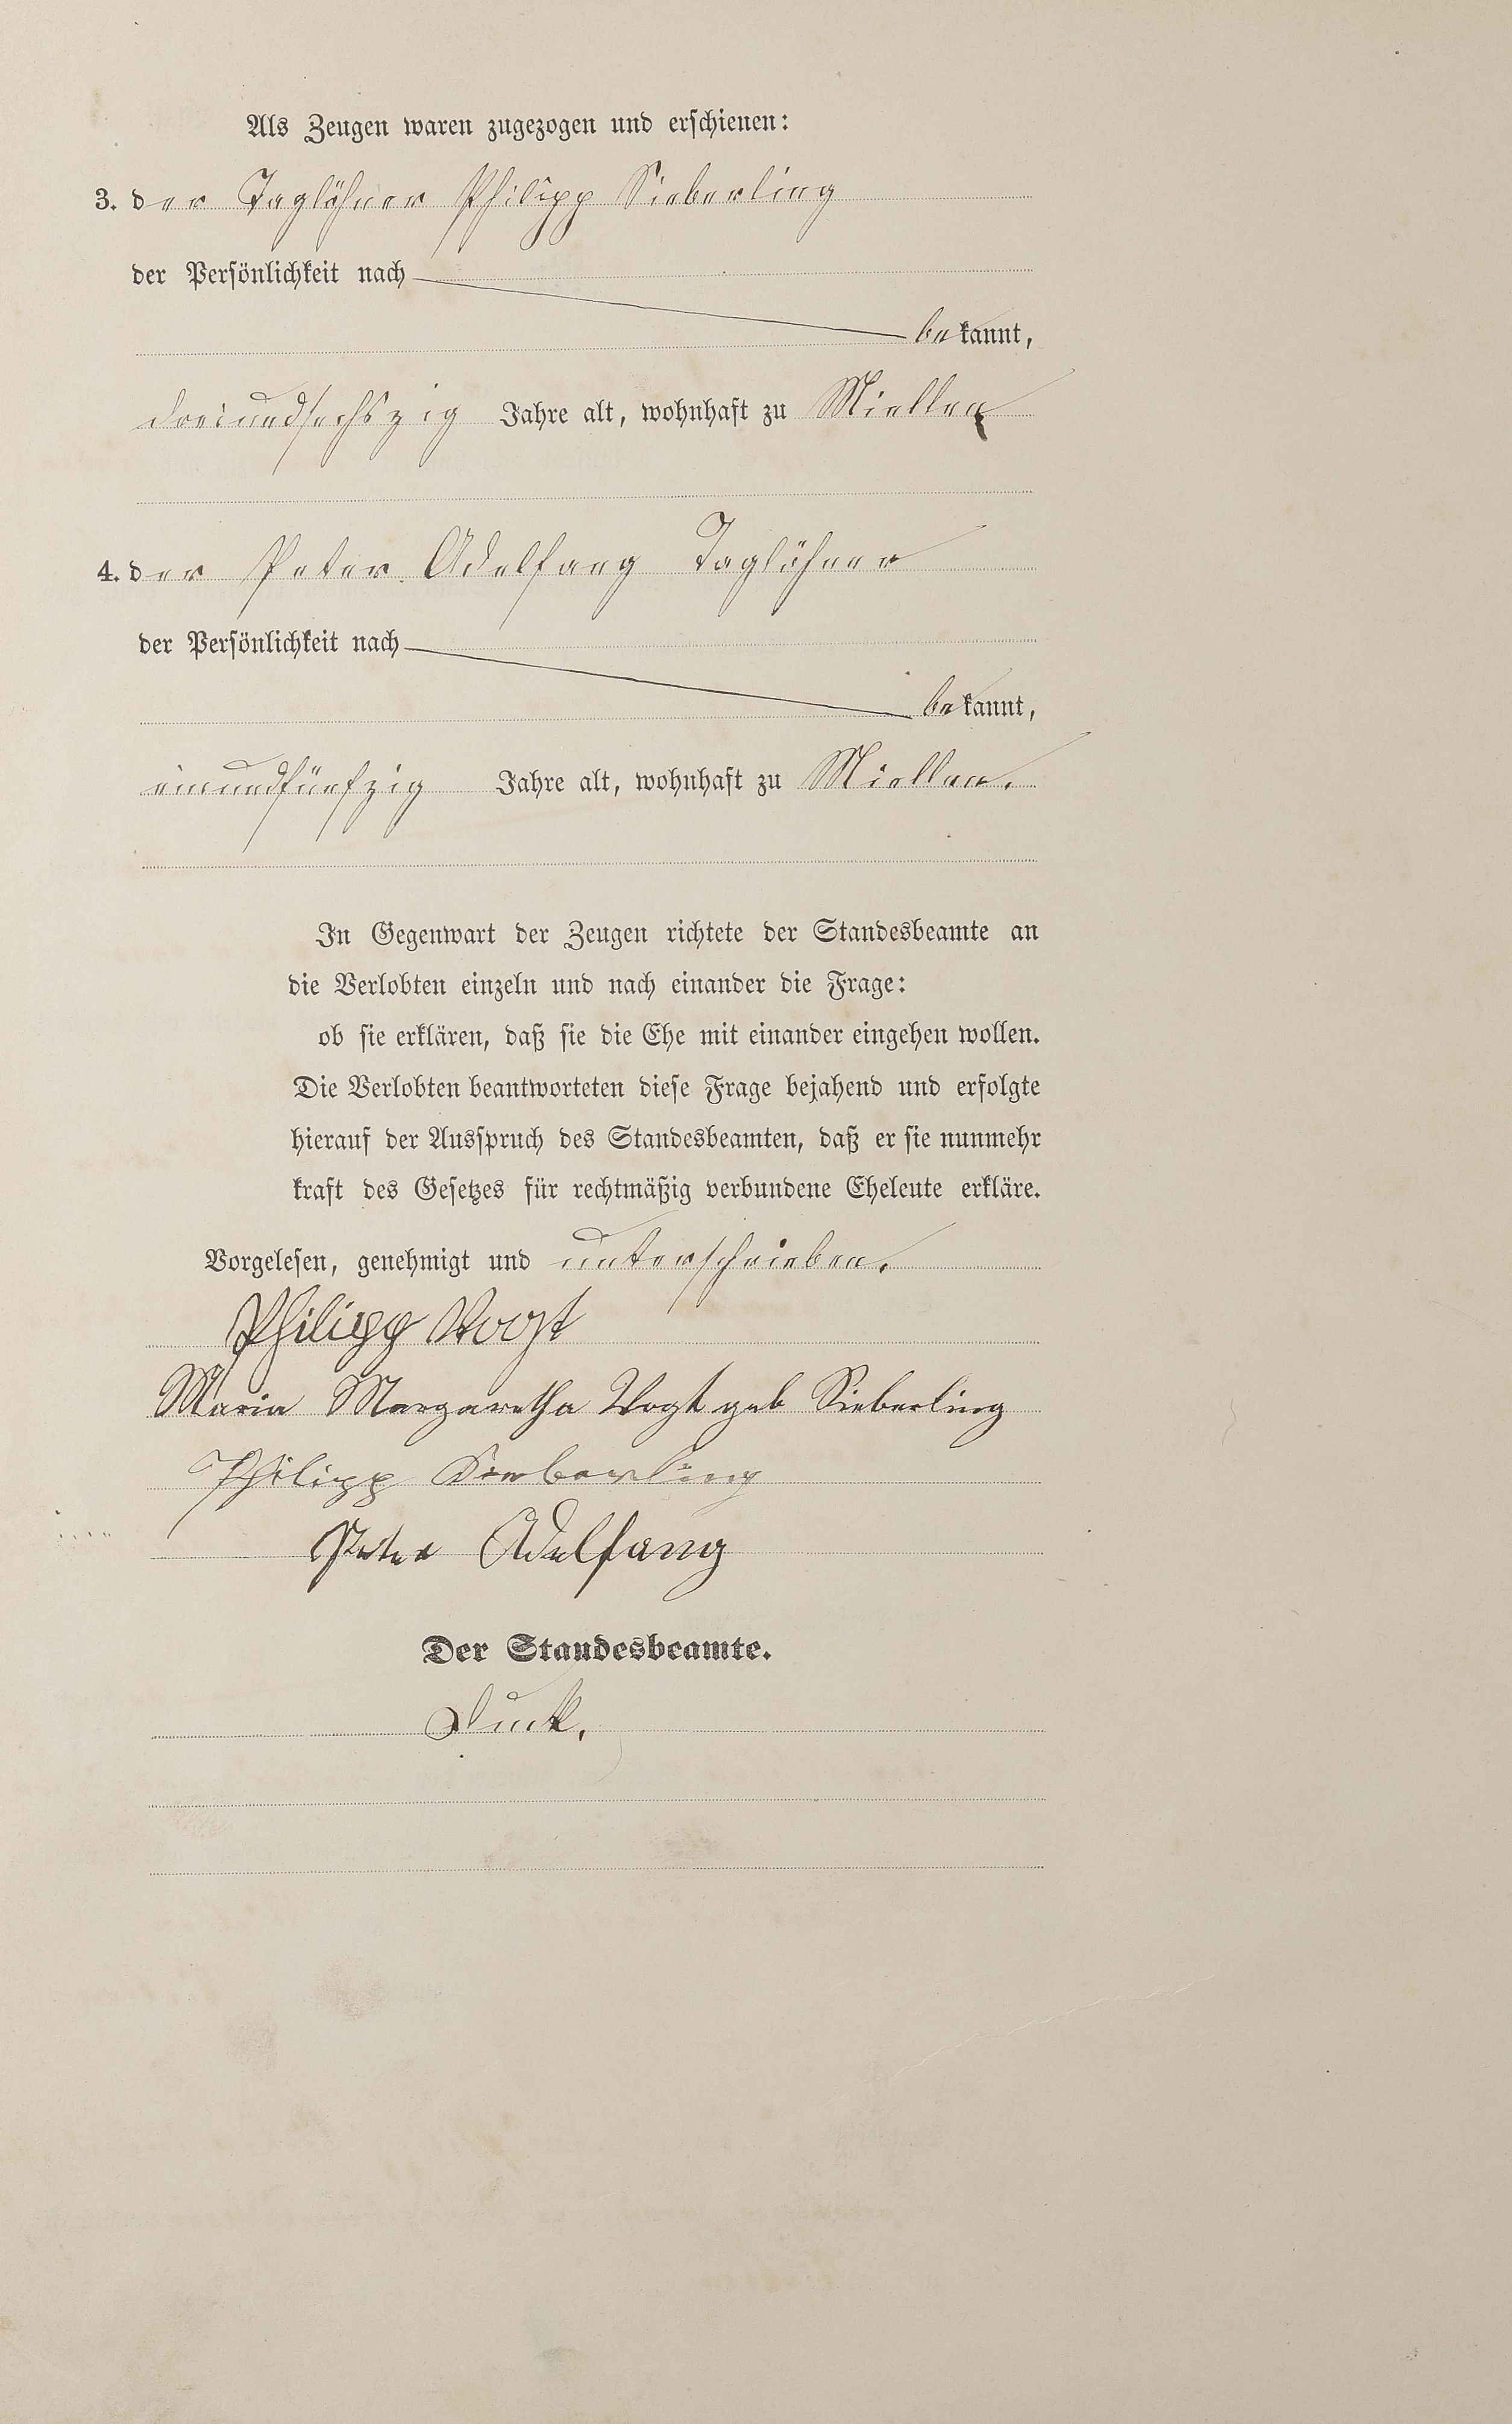 Als Zeugen waren zugezogen und erschienen:
3. der Taglöhner Philipp Sieberling
der Persönlichkeit nach
bekannt,
dreiundsechszig Jahre alt, wohnhaft zu Miellen
4. der Peter Adelfang Taglöhner
der Persönlichkeit nach
bekannt,
einundfünfzig Jahre alt, wohnhaft zu Miellen.
In Gegenwart der Zeugen richtete der Standesbeamte an
die Verlobten einzeln und nach einander die Frage:
ob sie erklären, daß sie die Ehe mit einander eingehen wollen.
Die Verlobten beantworteten diese Frage bejahend und erfolgte
hierauf der Ausspruch des Standesbeamten, daß er sie nunmehr
kraft des Gesetzes für rechtmäßig verbundene Eheleute erkläre.
Vorgelesen, genehmigt und unterschrieben.
Philipp Vogt
Maria Margaretha Vogt geb Sieberling
Philipp Sieberling
Peter Adelfang
Der Standesbeamte.